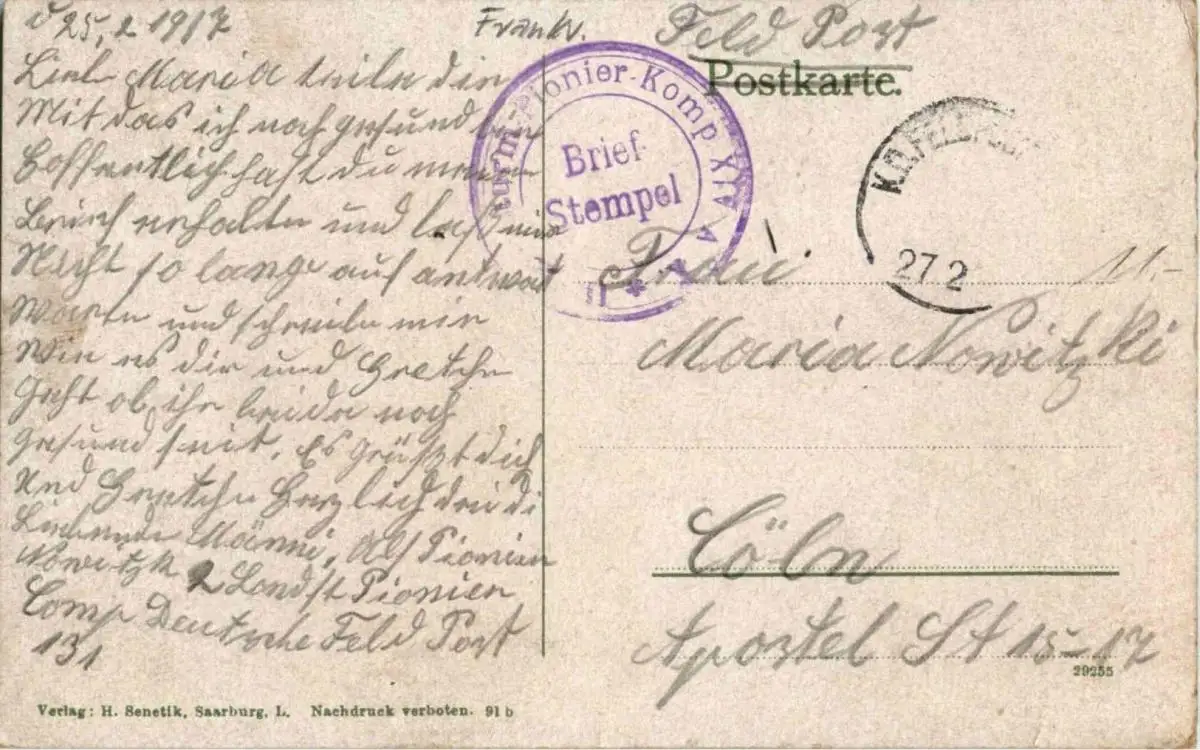 d 25, 2 1917
Liebe Maria teile dir
Mit das ich noch gesund bin
Hoffentlich hast du meinen
Brief erhalten und lass mir
Nicht so lange auf antwort
Warten und schreibe mir
Wie es dir und Gretchen
Geht ob ihr beide noch
Gesund seit. Es grüßt dich
Und Gretchen Herzlich dein di
Liebender Männi, Abs Pionier
Nowitzk 2 Landst Pionier
Comp Deutsche Feld Post
131
Frank.
Feld Post
Postkarte.
Pionier-Komp XIV
Brief-
Stempel
K.D. FELDPOST
27 2
Frau
11.-
Maria Nowitzki
Cöln
Apostel St 15-17
29255
Verlag: H. Senetik, Saarburg, L. Nachdruck verboten. 91 b